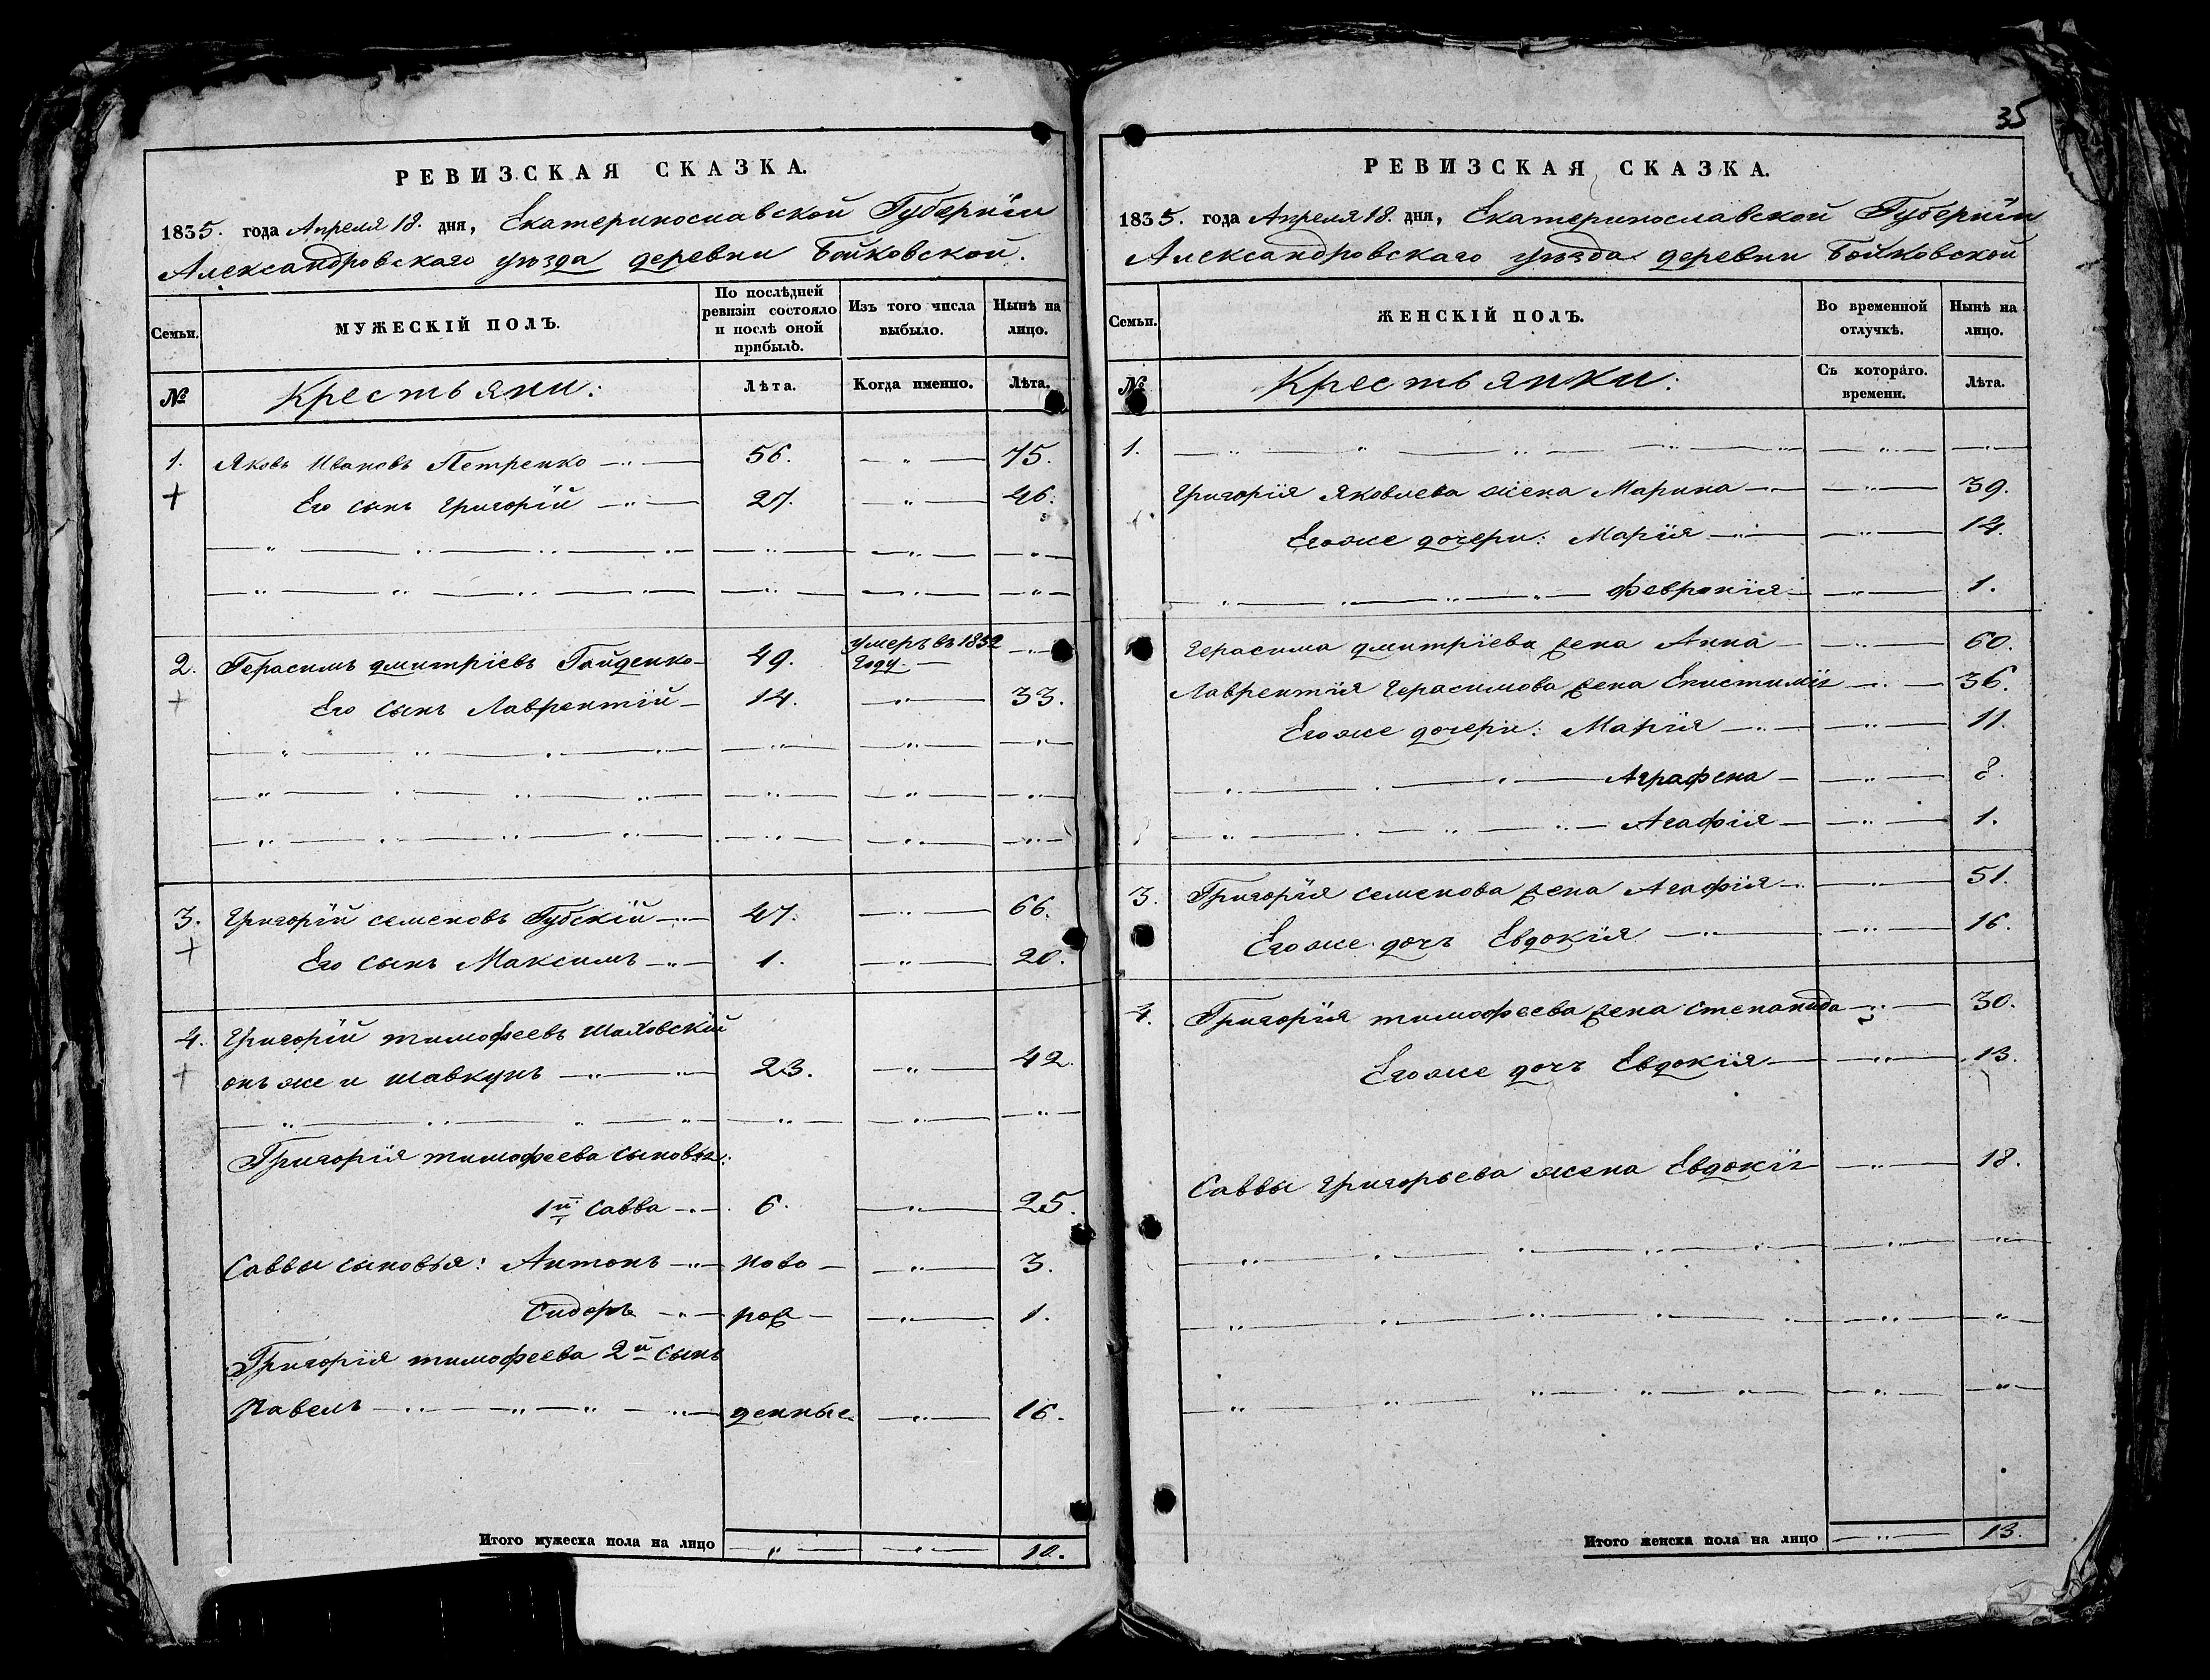 РЕВИЗСКАЯ СКАЗКА.
1835. года Апреля 18. дня, Екатеринославской Губернїи
Александровскаго уѣзда деревни Бойковской.
Семьи.
МУЖЕСКІЙ ПОЛЪ.
По послѣдней ревизіи состояло и послѣ оной прибыло.
Изъ того числа выбыло.
Нынѣ на лицо.
№
Крестьяни:
Лѣта.
Когда именно.
Лѣта.
1. Яковъ Ивановъ Петренко — „ — 56. — „ — 75.
+ Его сынъ Григорїй — „ — 27. — „ — 46.
2. Герасимъ Дмитрїевъ Гайденко — 49. Умеръ въ 1832 Году. — „ —
+ Его сынъ Лаврентїй — 14. — „ — 33.
3. Григорїй Семеновъ Губскїй — „ — 47. — „ — 66.
+ Его сынъ Максимъ — „ — 1. — „ — 20.
4. Григорїй Тимофеевъ Шаховскїй
+ онъ же и Шавкунъ — „ — 23. — „ — 42.
Григорїя Тимофеева сыновья:
1й Савва — „ — 6. — „ — 25.
Саввы сыновья: Антонъ — „ — ново — — „ — 3.
Сидоръ — „ — рож — — „ — 1.
Григорїя Тимофеева 2й сынъ
Павелъ — „ — „ — „ — денные — „ — 16.
Итого мужеска пола на лицо — „ — — „ — 10.
35
РЕВИЗСКАЯ СКАЗКА.
1835. года Апреля 18. дня, Екатеринославской Губернїи
Александровскаго уѣзда деревни Бойковской
Семьи.
ЖЕНСКІЙ ПОЛЪ.
Во временной отлучкѣ.
Нынѣ на лицо.
№
Крестьянки:
Съ котораго времени.
Лѣта.
1. — „ — „ — „ — „ — — „ — — „ —
Григорїя Яковлева жена Марина — „ — — „ — 39.
Его же дочери: Марїя — „ — — „ — 14.
Февронїя — — „ — 1.
Герасима Дмитрїева жена Анна — — „ — 60.
Лаврентїя Герасимова жена Епистимїя — „ — 36.
Его же дочери: Марїя — „ — — „ — 11.
Аграфена — — „ — 8.
Агафїя — — „ — 1.
3. Григорїя Семенова жена Агафїя — „ — 51.
Его же дочь Евдокїя — „ — — „ — 16.
4. Григорїя Тимофеева жена Степанида — „ — 30.
Его же дочь Евдокїя — — „ — 13.
Саввы Григорьева жена Евдокїя — „ — 18.
Итого женска пола на лицо — „ — 13.